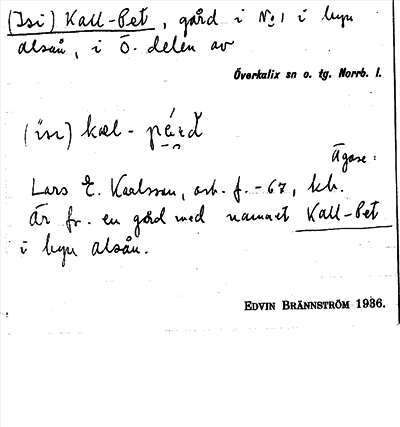 (Isi) Kall-Pet, gård i No 1 i byn
alsån, i Ö. delen av
Överkalix sn o. tg. Norrb. l.
(isi) kæl-
Ägare:
Lars E. Karlsson, arb. f. -67, kh.
Är fr. en gård med namnet Kall-Pet
i byn alsån.
EDVIN BRÄNNSTRÖM 1936.